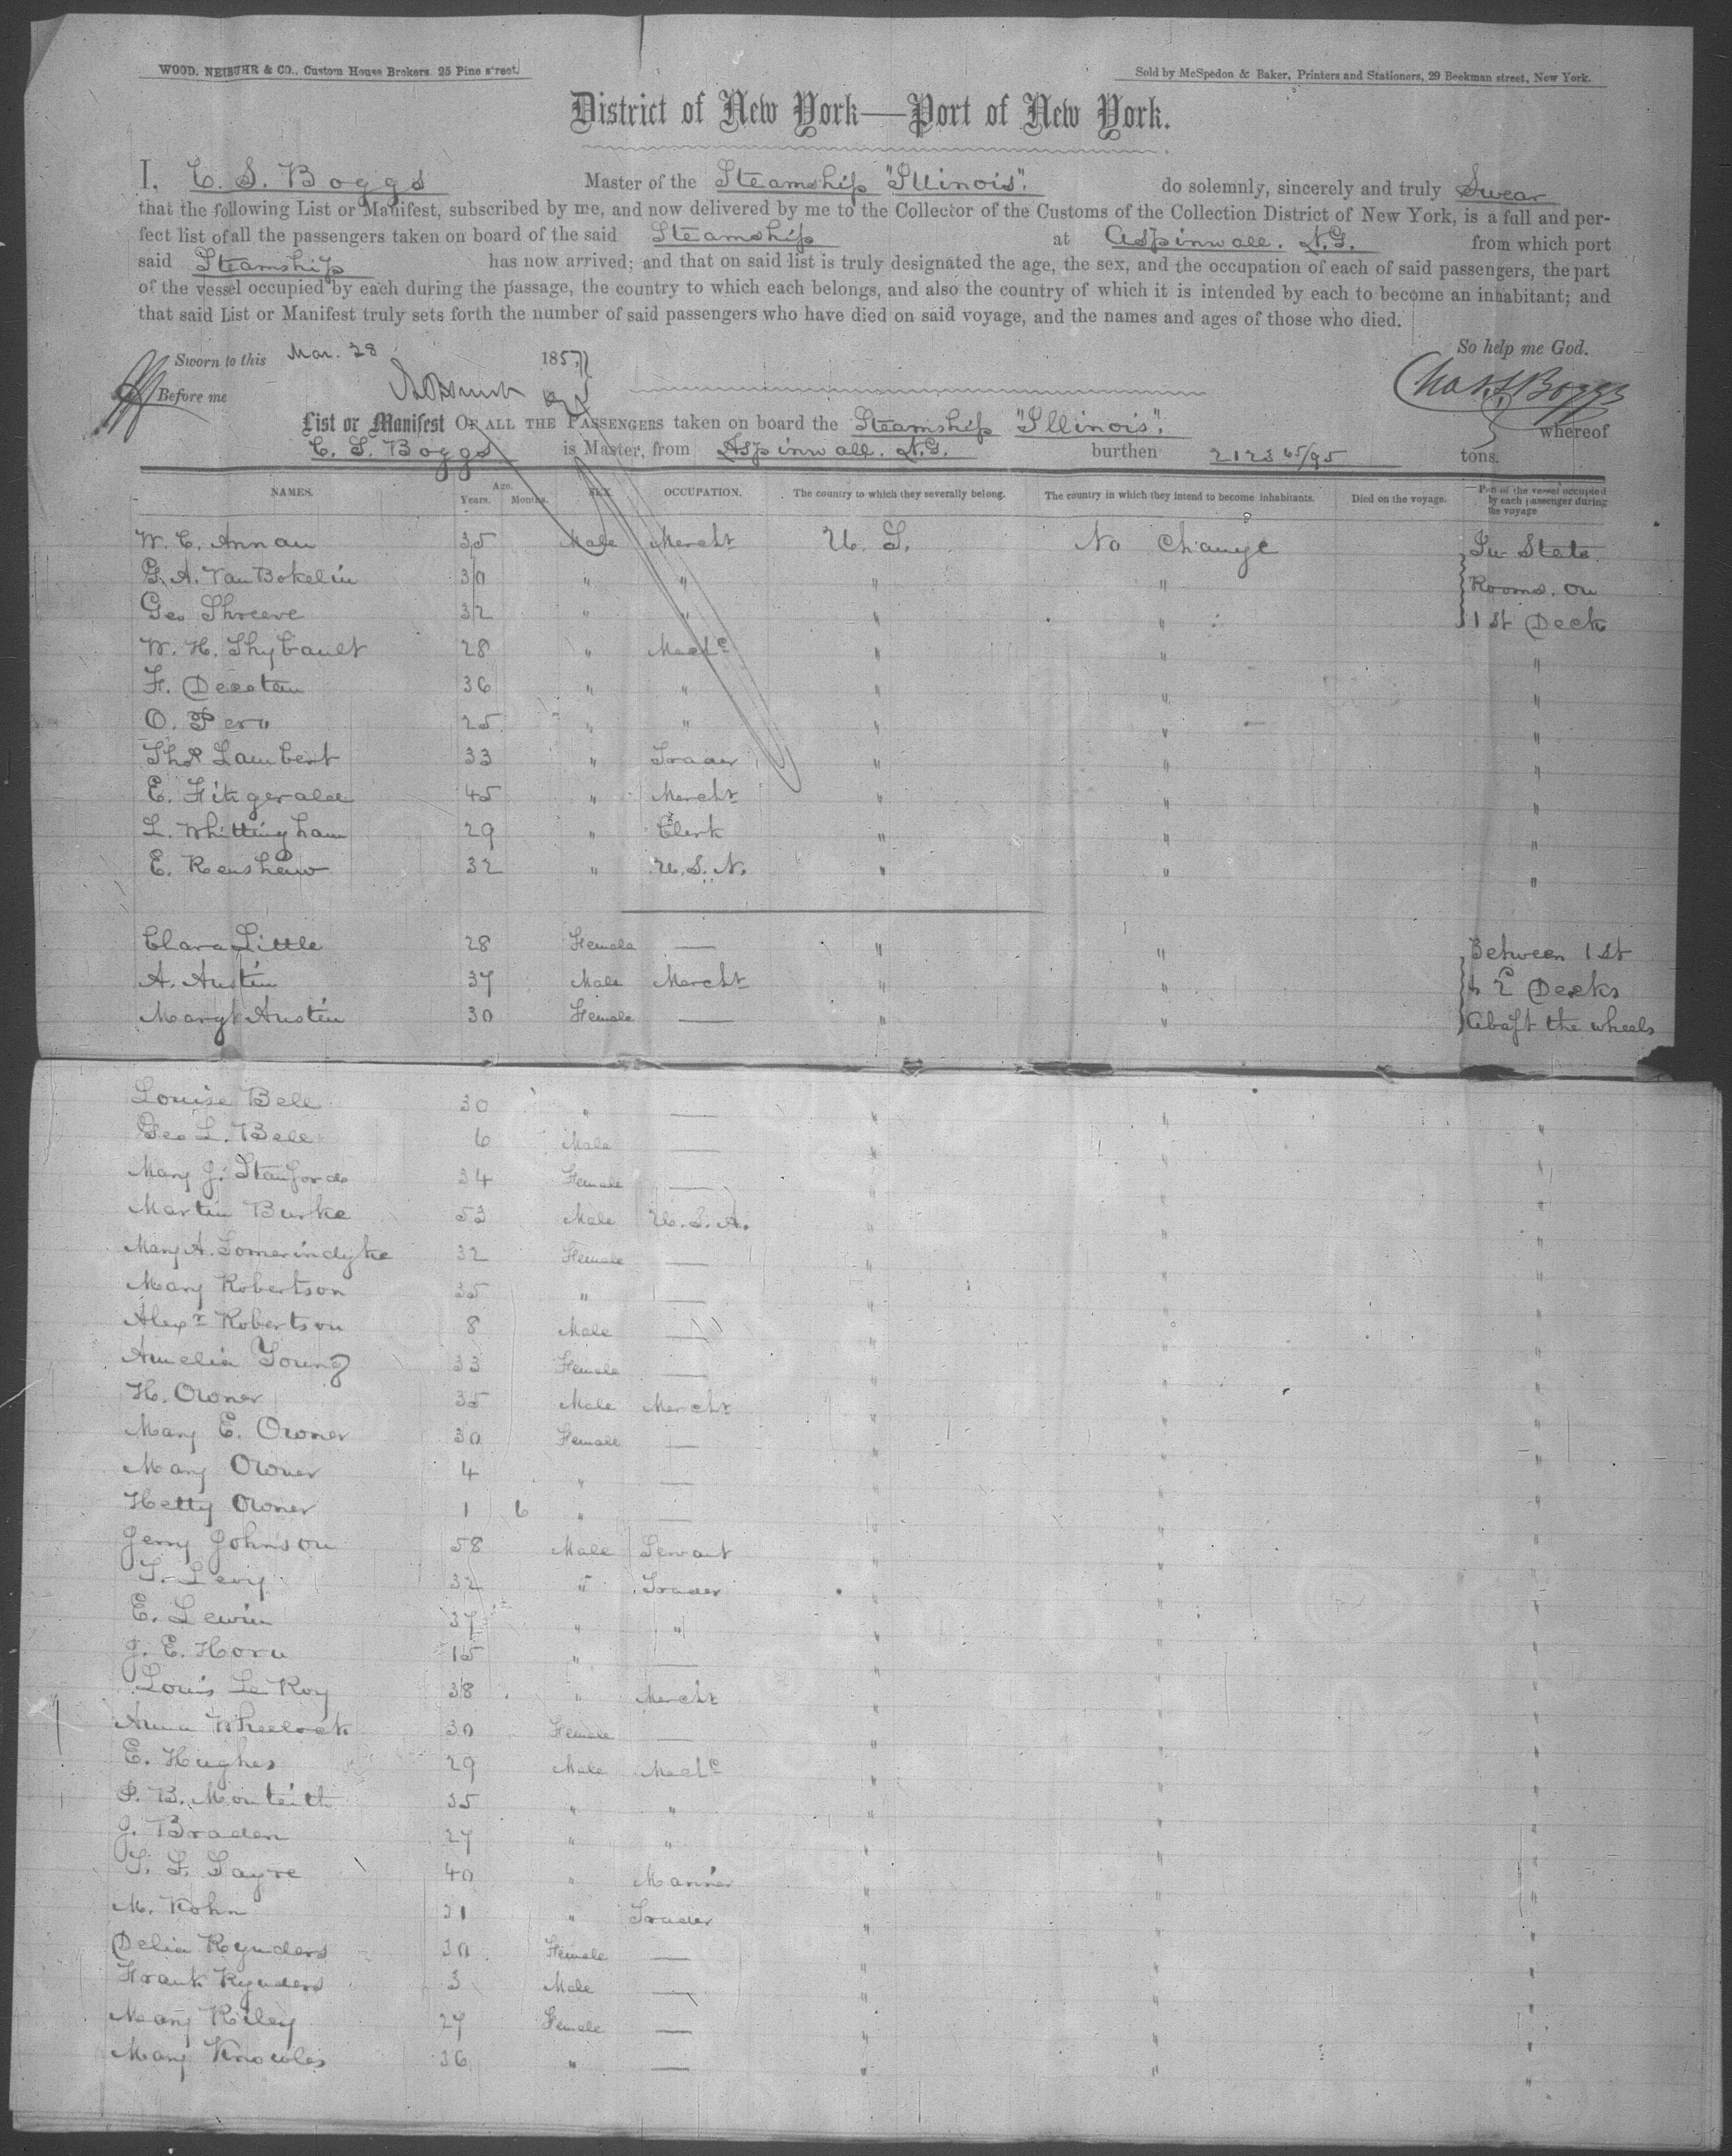 WOOD, NEIBUHR & CO., Custom House Brokers. 25 Pine street.
Sold by McSpedon & Baker, Printers and Stationers, 29 Beekman street, New York.
District of New York—Port of New York.
I, C. S. Boggs Master of the Steamship "Illinois". do solemnly, sincerely and truly Swear
that the following List or Manifest, subscribed by me, and now delivered by me to the Collector of the Customs of the Collection District of New York, is a full and per-
fect list of all the passengers taken on board of the said Steamship at Aspinwall. N.G. from which port
said Steamship has now arrived; and that on said list is truly designated the age, the sex, and the occupation of each of said passengers, the part
of the vessel occupied by each during the passage, the country to which each belongs, and also the country of which it is intended by each to become an inhabitant; and
that said List or Manifest truly sets forth the number of said passengers who have died on said voyage, and the names and ages of those who died.
Sworn to this Mar. 28 1857 So help me God.
Before me Chas. S. Boggs
List or Manifest OF ALL THE PASSENGERS taken on board the Steamship "Illinois". whereof
C. S. Boggs is Master, from Aspinwall. N.G. burthen 2123 65/95 tons.
NAMES. Age. Years. Months. SEX. OCCUPATION. The country to which they severally belong. The country in which they intend to become inhabitants. Died on the voyage. Part of the vessel occupied by each passenger during the voyage
W. C. Annan 35 Male Mercht U. S. No Change In State
G. A. Van Bokelin 30 " " " " Rooms. on
Geo Shreeve 32 " " " " 1st Deck
W. H. Thybault 28 " Mechc " " "
F. Decotau 36 " " " " "
O. Pero 25 " " " " "
Thos Lambert 33 " Trader " " "
E. Fitzgerald 45 " Mercht " " "
L. Whittingham 29 " Clerk " " "
E. Renshaw 32 " U.S.N. " " "
Clara Little 28 Female — " " Between 1st
A. Austin 37 Male Mercht " " & 2 Decks
Mary Austin 30 Female — " " Abaft the wheels
Louise Bell 30 " — " " "
Geo L. Bell 6 Male — " " "
Mary J. Stanford 34 Female — " " "
Martin Burke 53 Male U.S.A. " " "
Mary A. Somerindyke 32 Female — " " "
Mary Robertson 35 " — " " "
Alexr Robertson 8 Male — " " "
Amelia Young 33 Female — " " "
H. Owner 35 Male Mercht " " "
Mary E. Owner 30 Female — " " "
Mary Owner 4 " — " " "
Hetty Owner 1 6 " — " " "
Jerry Johnson 58 Male Servant " " "
T. Levy 32 " Trader " " "
E. Lewin 37 " " " " "
J. E. Horn 15 " — " " "
Louis Le Roy 38 " Mercht " " "
Anna Wheelock 30 Female — " " "
E. Hughes 29 Male Mechc " " "
P. B. Monteith 35 " " " " "
J. Braden 27 " " " " "
T. F. Sayre 40 " Mariner " " "
M. Kohn 31 " Trader " " "
Delia Rynders 30 Female — " " "
Frank Rynders 3 Male — " " "
Mary Riley 27 Female — " " "
Mary Knowles 36 " — " " "